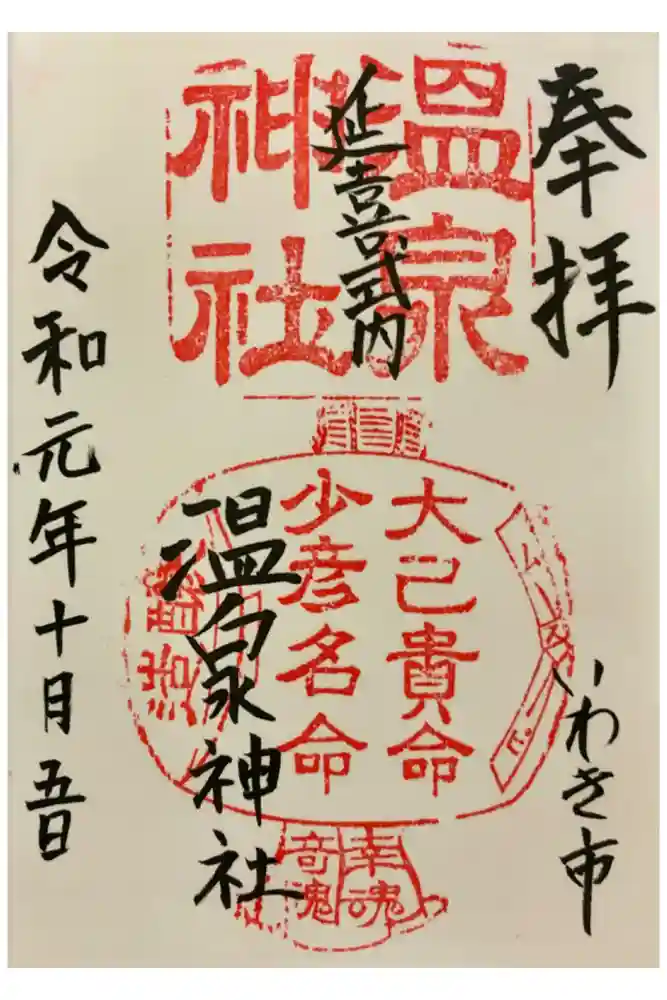 奉拝
いわき市
温泉
神社
延喜式内
大己貴命
少彦名命
幸魂
奇魂
温泉神社
令和元年十月五日